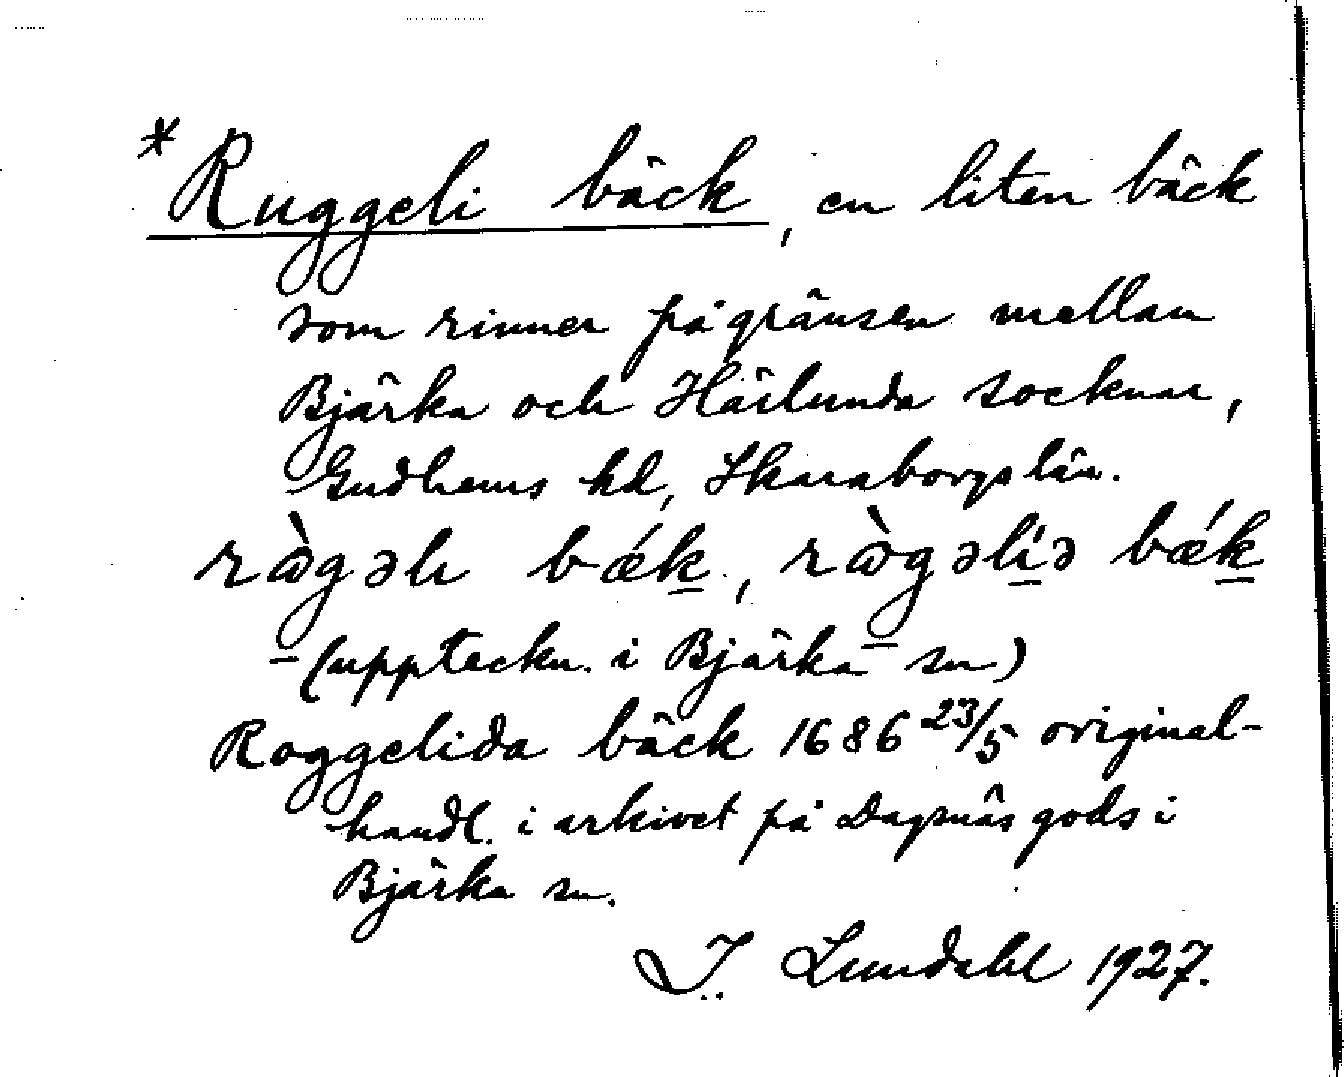 *Ruggeli bäck, en liten bäck
som rinner på gränsen mellan
Bjärka och Härlunda socknar,
Gudhems hd, Skaraborgs län.
bǽk, bǽk
(uppteckn. i Bjärka sn)
Roggelida bäck 1686 23/5 original-
handl. i arkivet på Dagsnäs gods i
Bjärka sn.
I. Lundahl 1927.